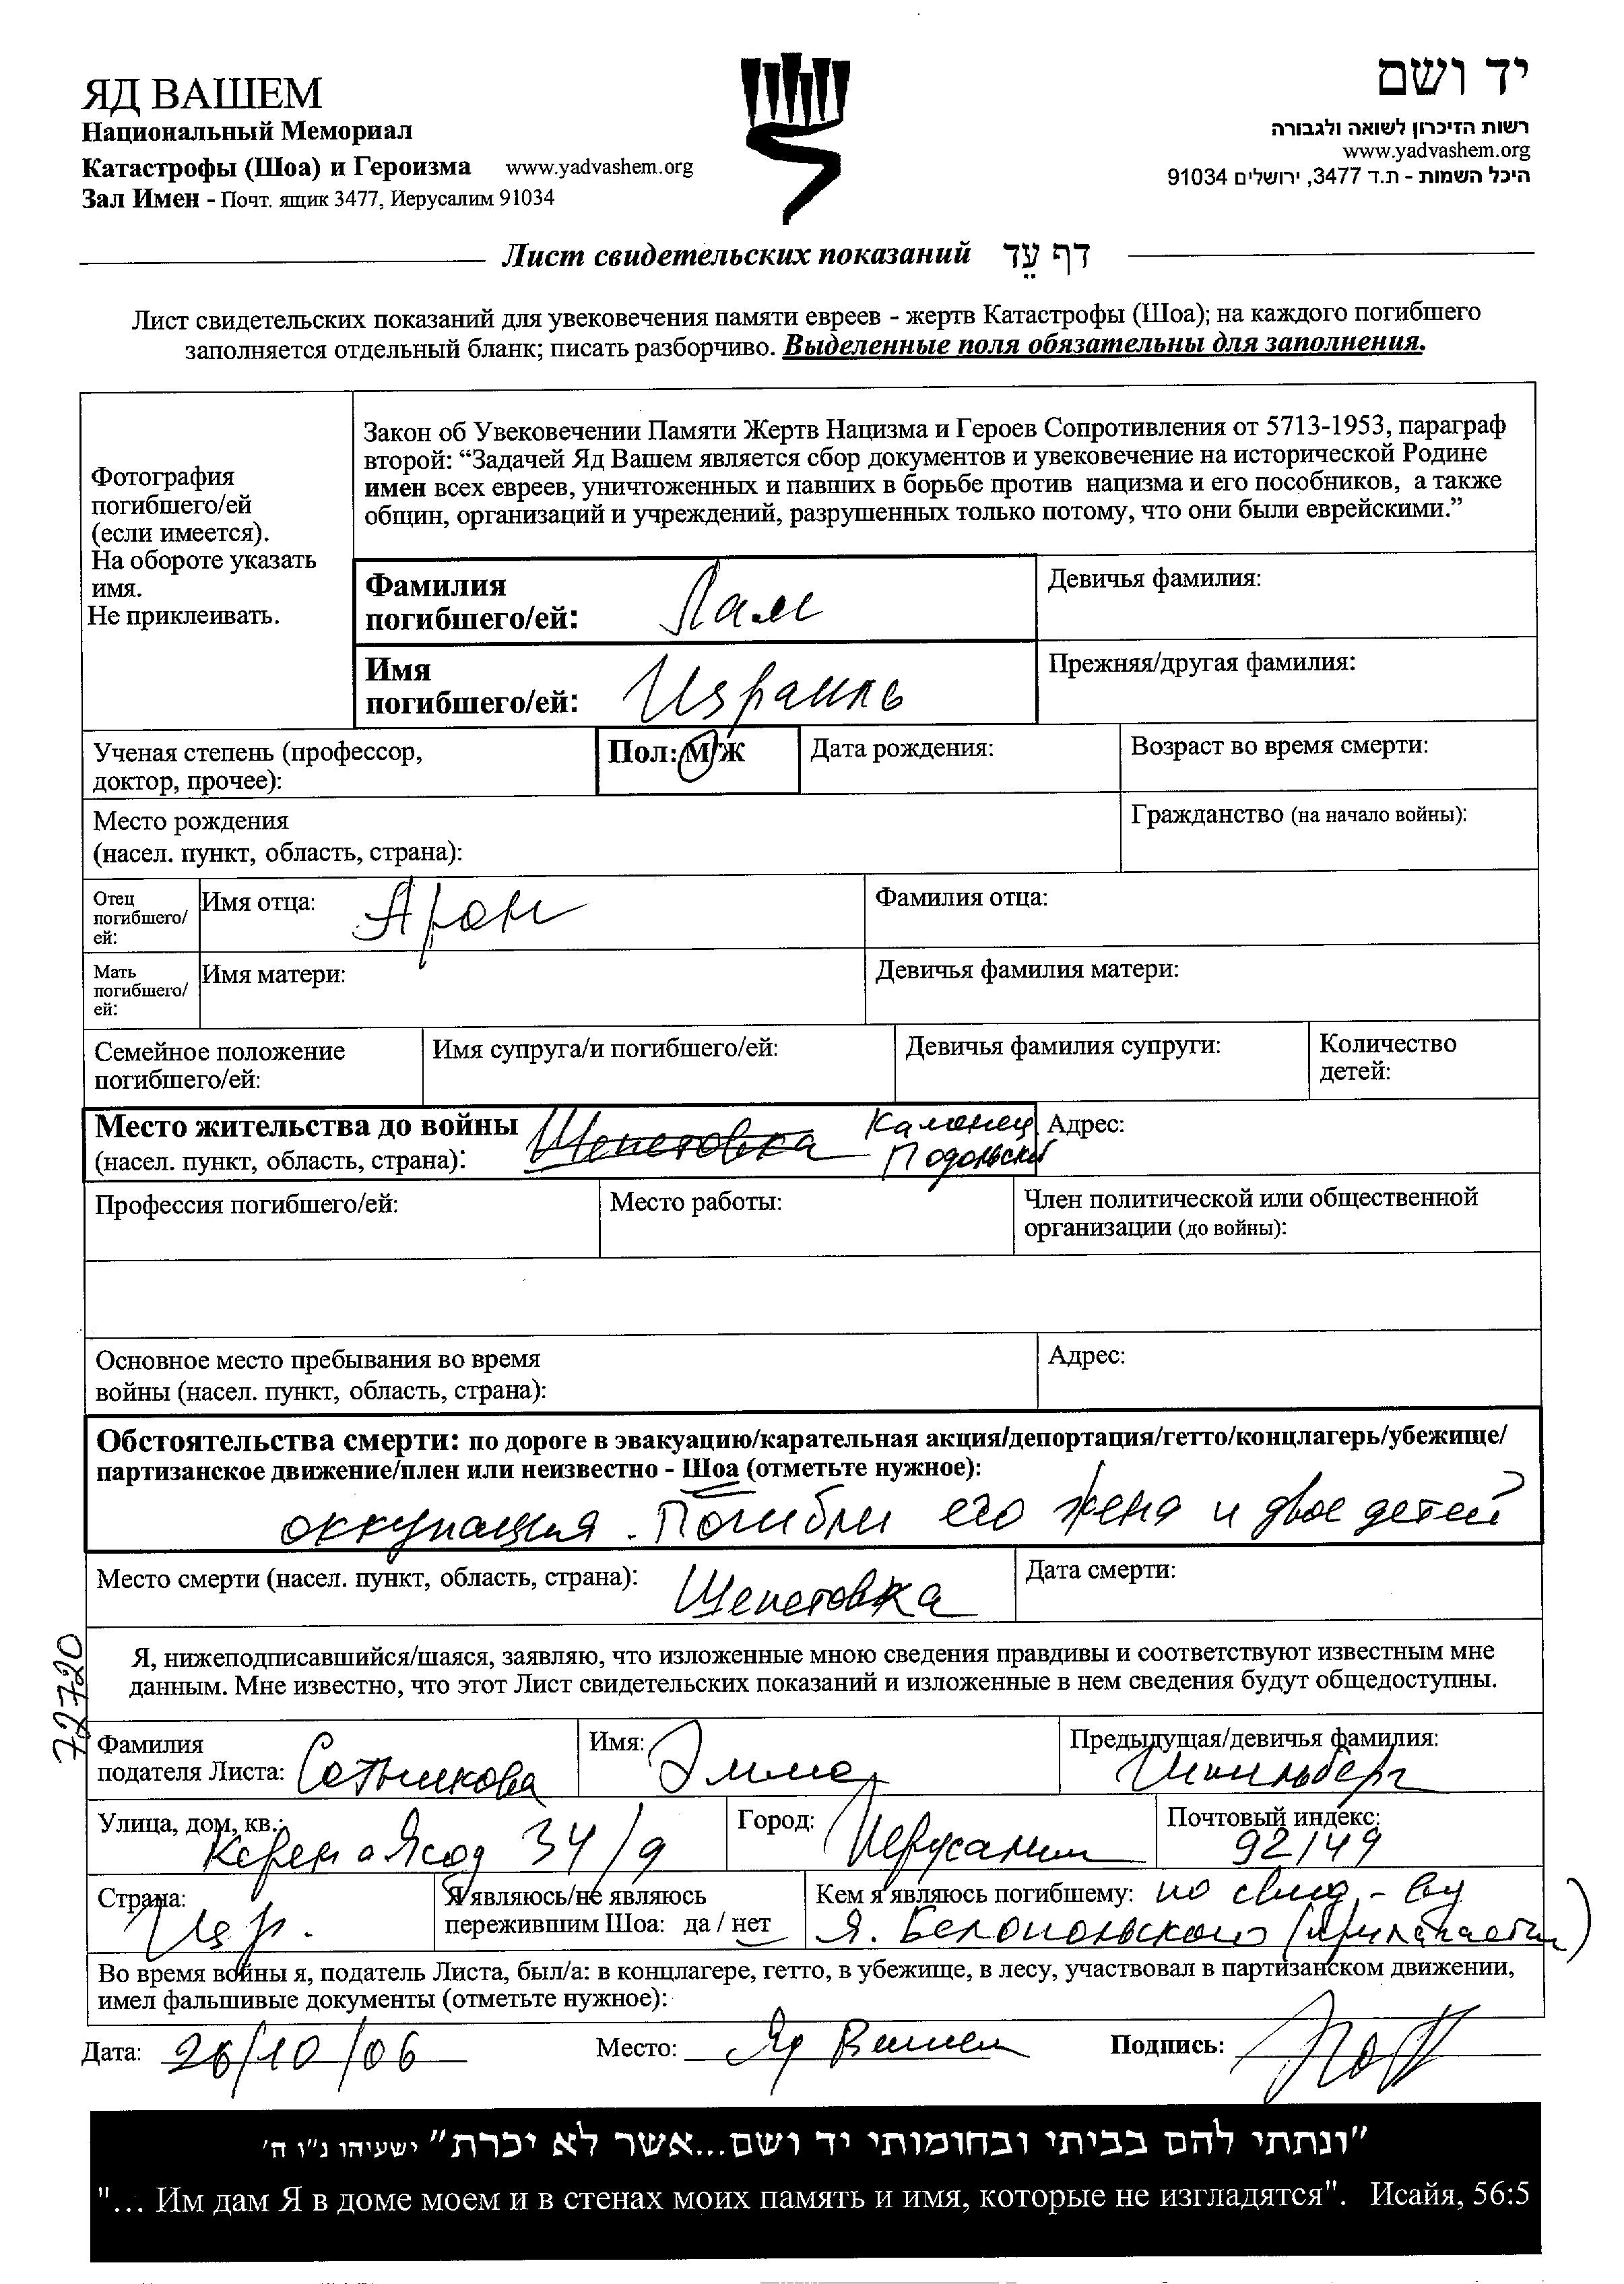 ЯД ВАШЕМ
Национальный Мемориал
Катастрофы (Шоа) и Героизма www.yadvashem.org
Зал Имен - Почт. ящик 3477, Иерусалим 91034
יד ושם
רשות הזיכרון לשואה ולגבורה
www.yadvashem.org
היכל השמות - ת.ד 3477, ירושלים 91034
Лист свидетельских показаний דף עֵד
Лист свидетельских показаний для увековечения памяти евреев - жертв Катастрофы (Шоа); на каждого погибшего
заполняется отдельный бланк; писать разборчиво. Выделенные поля обязательны для заполнения.
Фотография
погибшего/ей
(если имеется).
На обороте указать
имя.
Не приклеивать.
Закон об Увековечении Памяти Жертв Нацизма и Героев Сопротивления от 5713-1953, параграф
второй: “Задачей Яд Вашем является сбор документов и увековечение на исторической Родине
имен всех евреев, уничтоженных и павших в борьбе против нацизма и его пособников, а также
общин, организаций и учреждений, разрушенных только потому, что они были еврейскими.”
Фамилия
погибшего/ей: Лам
Девичья фамилия:
Имя
погибшего/ей: Израиль
Прежняя/другая фамилия:
Ученая степень (профессор,
доктор, прочее):
Пол: М/Ж
Дата рождения:
Возраст во время смерти:
Место рождения
(насел. пункт, область, страна):
Гражданство (на начало войны):
Отец
погибшего/
ей:
Имя отца: Арон
Фамилия отца:
Мать
погибшего/
ей:
Имя матери:
Девичья фамилия матери:
Семейное положение
погибшего/ей:
Имя супруга/и погибшего/ей:
Девичья фамилия супруги:
Количество
детей:
Место жительства до войны Шепетовка Каменец
(насел. пункт, область, страна): Подольский
Адрес:
Профессия погибшего/ей:
Место работы:
Член политической или общественной
организации (до войны):
Основное место пребывания во время
войны (насел. пункт, область, страна):
Адрес:
Обстоятельства смерти: по дороге в эвакуацию/карательная акция/депортация/гетто/концлагерь/убежище/
партизанское движение/плен или неизвестно - Шоа (отметьте нужное):
оккупация. Погибли его жена и двое детей
Место смерти (насел. пункт, область, страна): Шепетовка
Дата смерти:
72720
Я, нижеподписавшийся/шаяся, заявляю, что изложенные мною сведения правдивы и соответствуют известным мне
данным. Мне известно, что этот Лист свидетельских показаний и изложенные в нем сведения будут общедоступны.
Фамилия
подателя Листа: Сотникова
Имя: Эмма
Предыдущая/девичья фамилия:
Шпильберг
Улица, дом, кв.:
Керен а Ясод 34/9
Город: Иерусалим
Почтовый индекс:
92149
Страна:
Изр.
Я являюсь/не являюсь
пережившим Шоа: да / нет
Кем я являюсь погибшему: по свид-ву
Я. Белопольского
Во время войны я, податель Листа, был/а: в концлагере, гетто, в убежище, в лесу, участвовал в партизанском движении,
имел фальшивые документы (отметьте нужное):
Дата: 26/10/06 Место: Яд Вашем Подпись:
”ונתתי להם בביתי ובחומותי יד ושם...אשר לא יכרת” ישעיהו נ"ו ה'
"… Им дам Я в доме моем и в стенах моих память и имя, которые не изгладятся". Исайя, 56:5